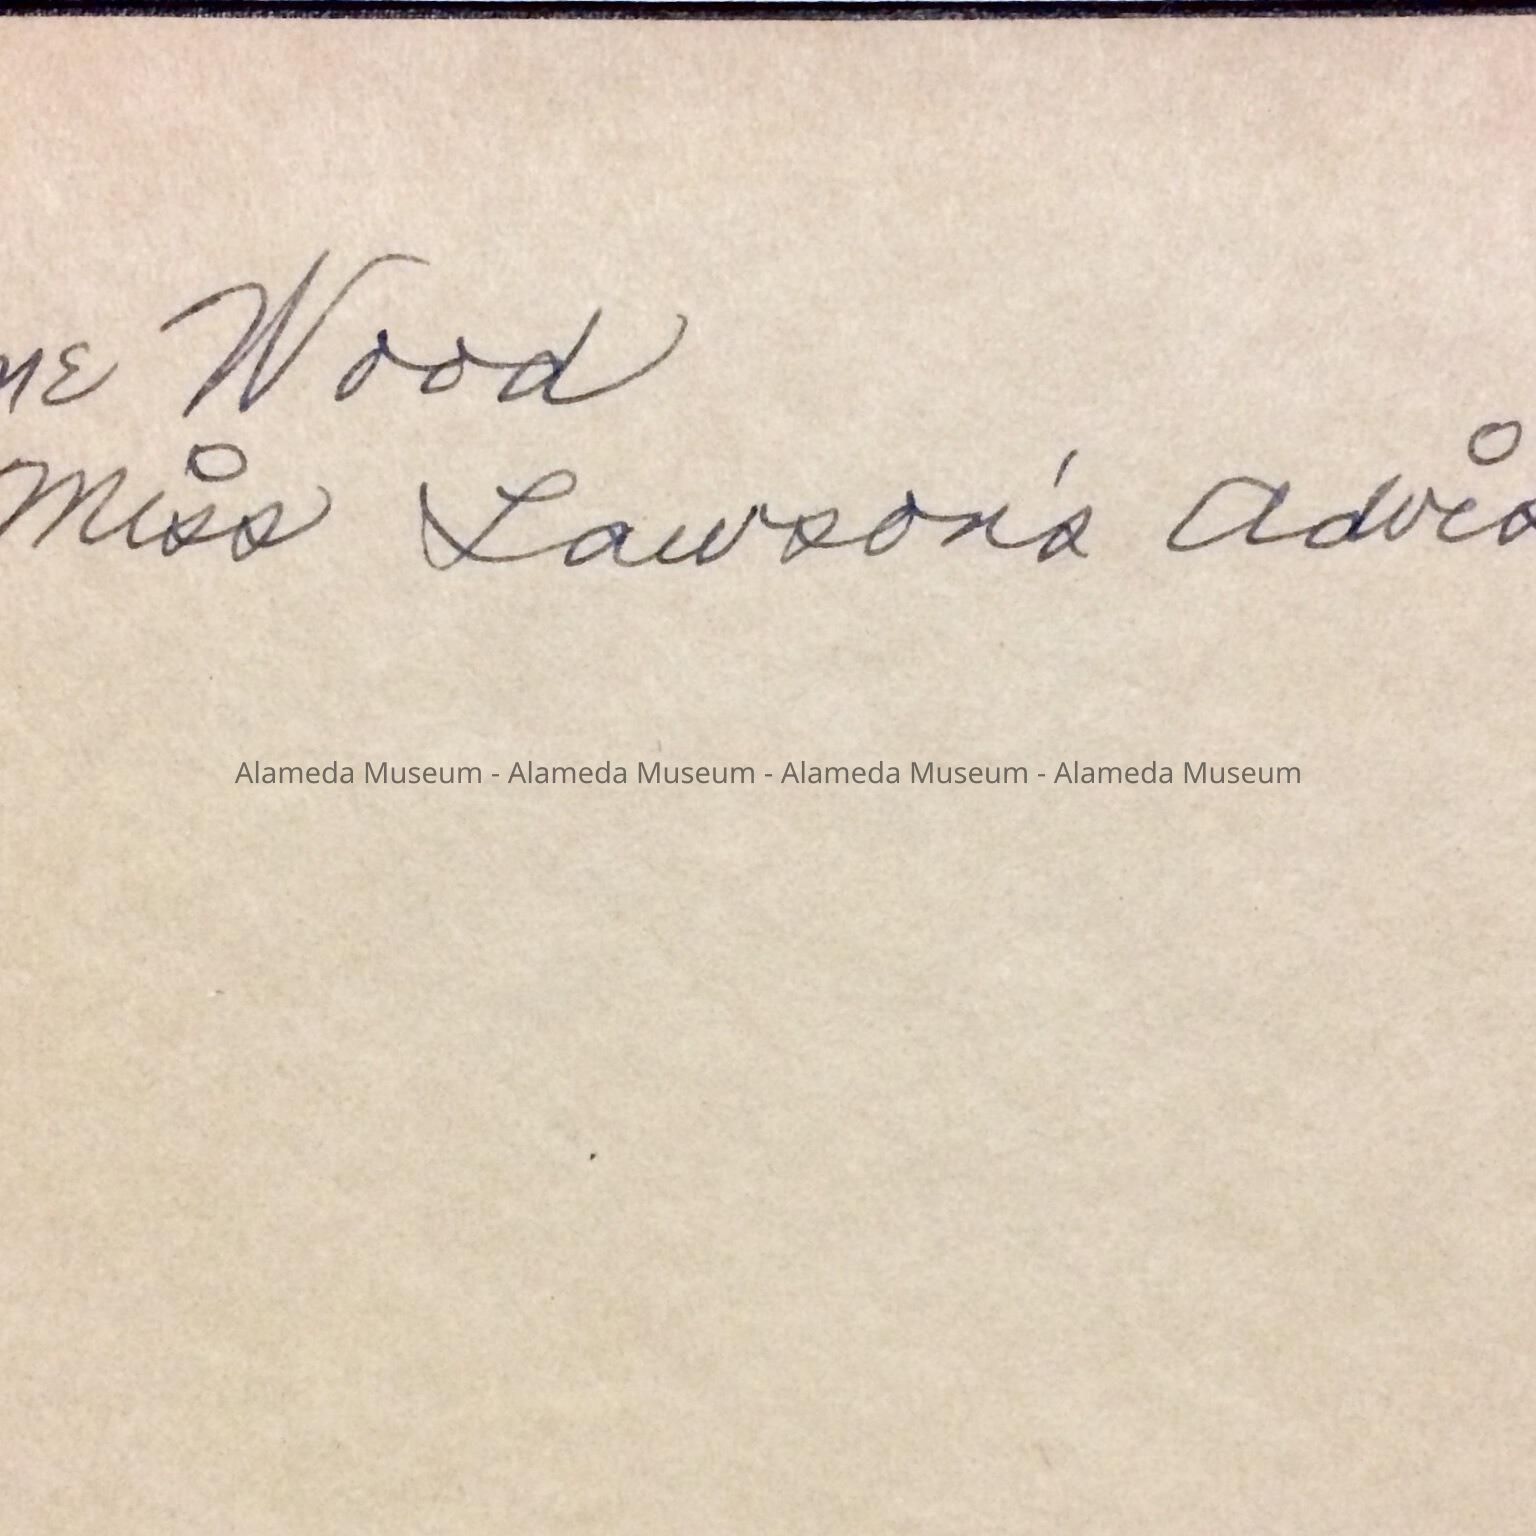 ne Wood
Miss Lawson's Advis
Alameda Museum - Alameda Museum - Alameda Museum - Alameda Museum